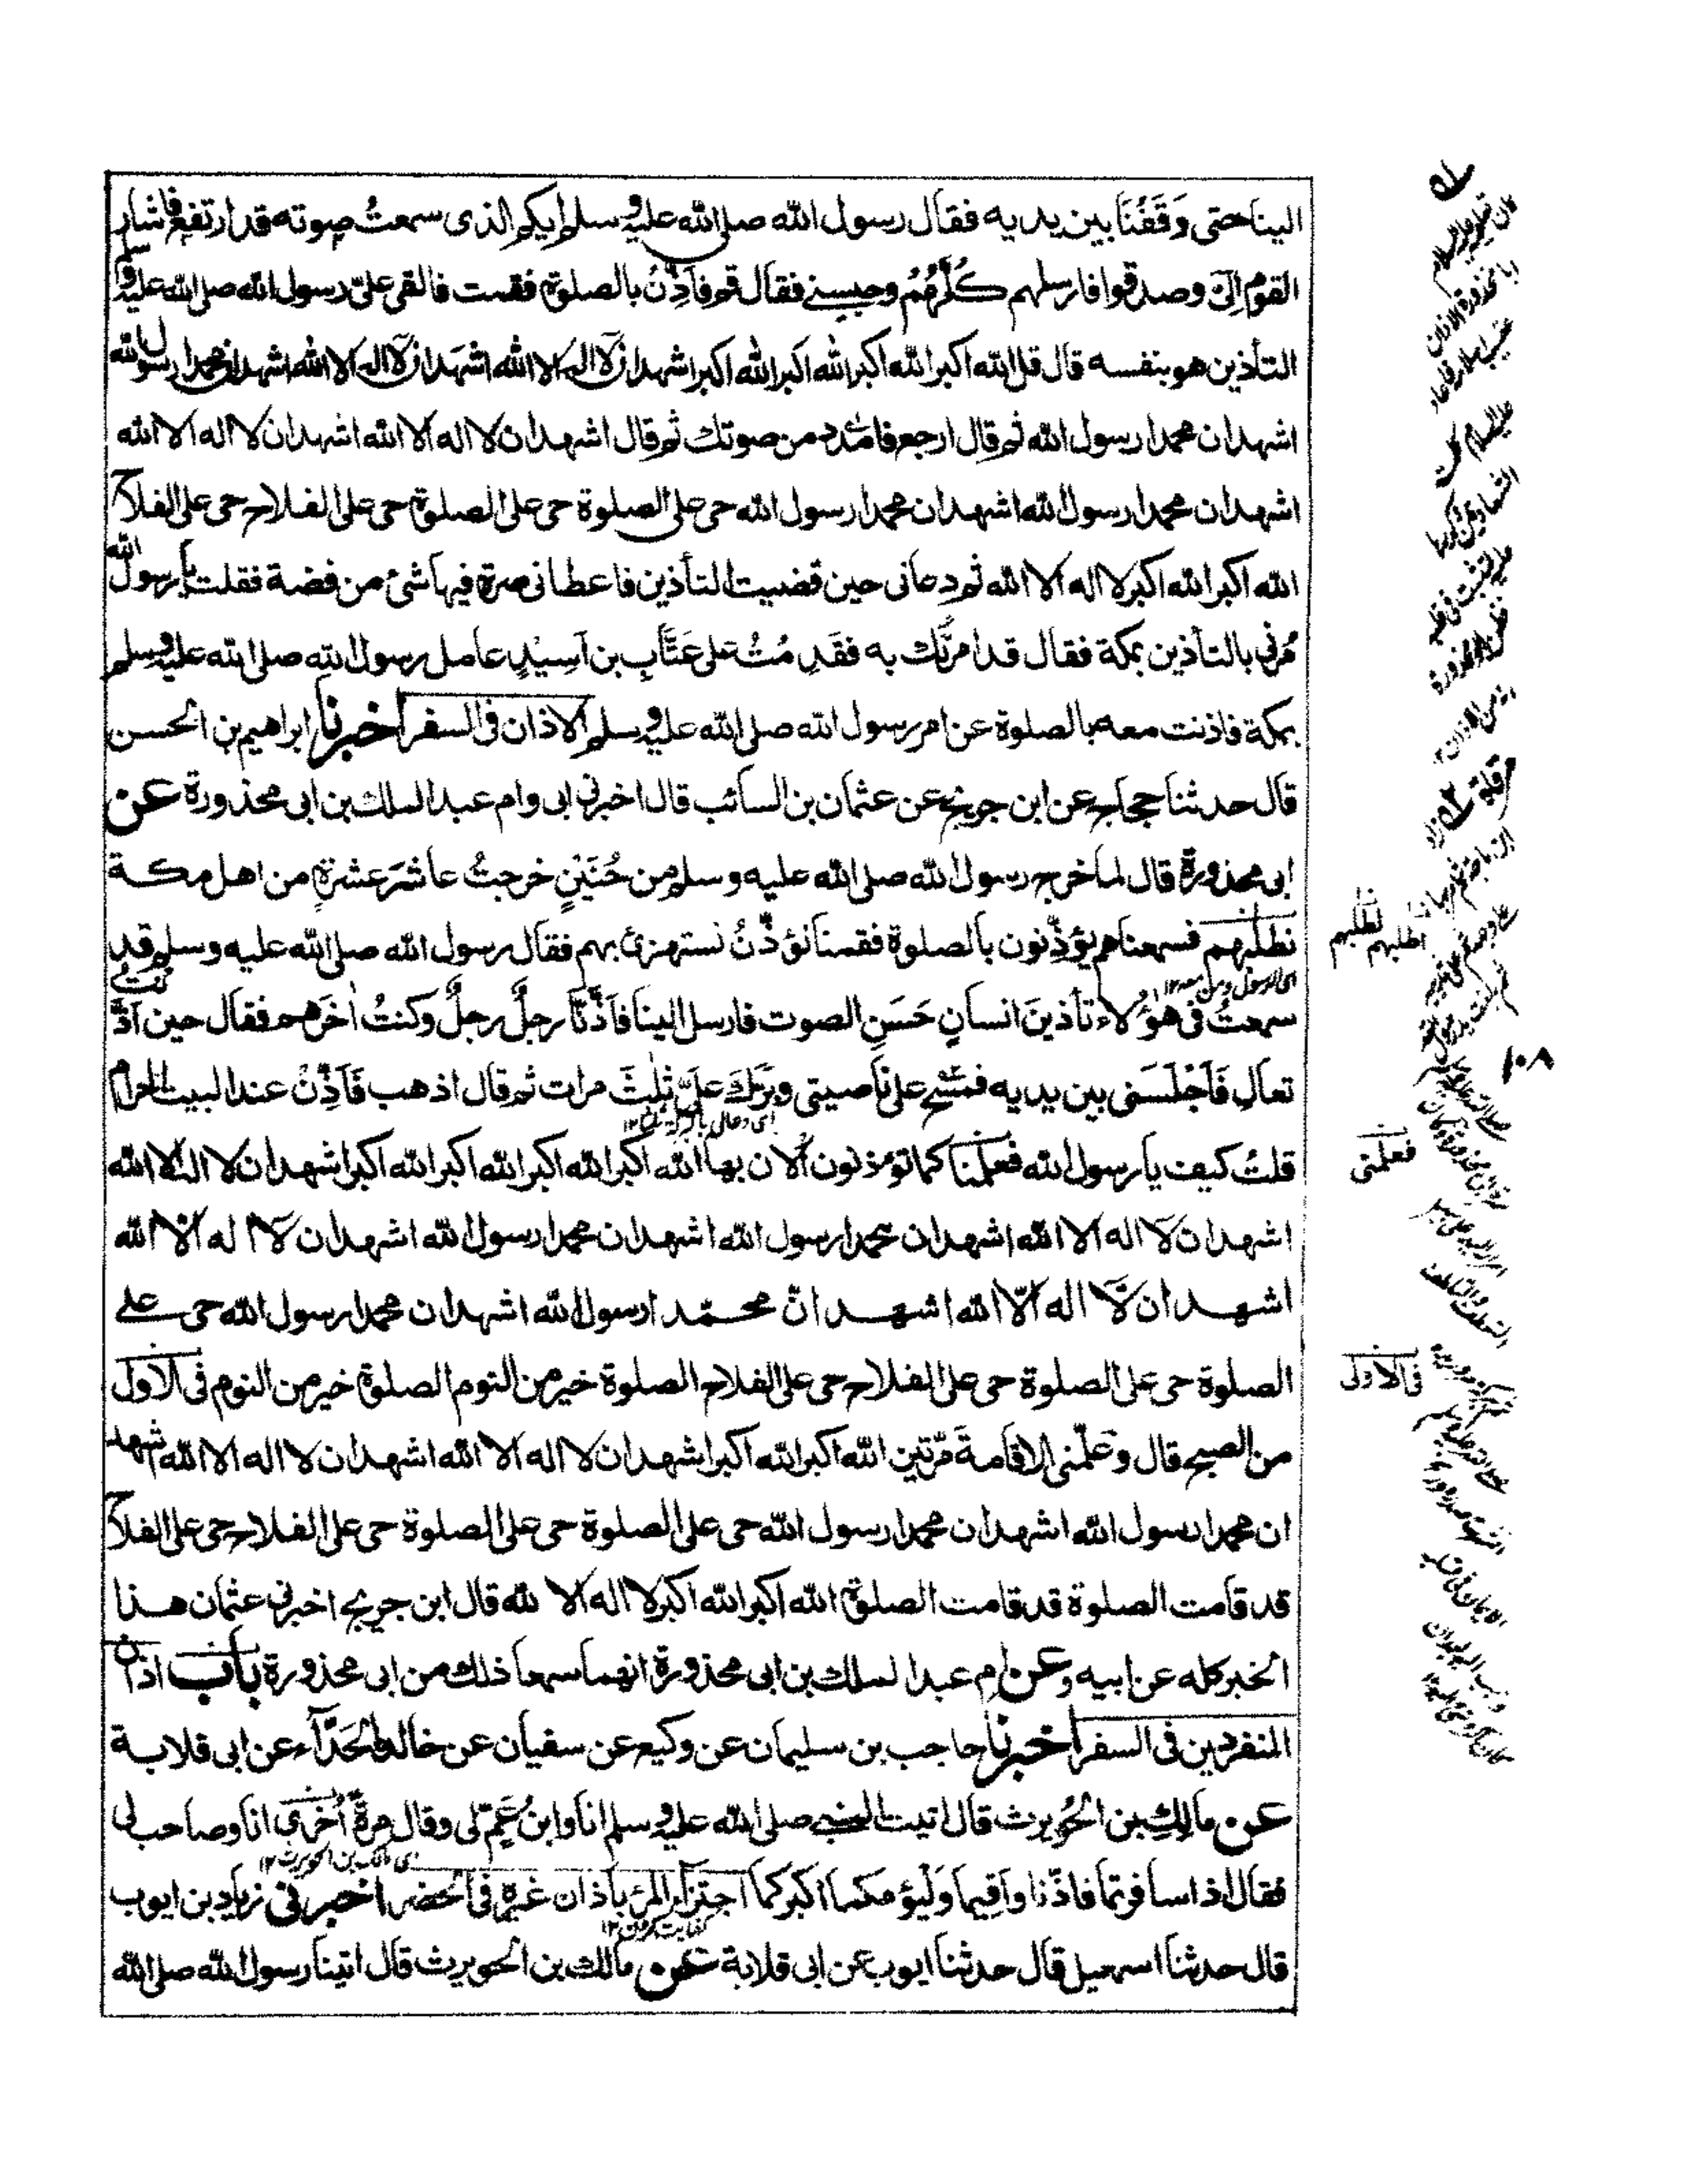 الينا حتى وَقَفْنَا بين يديه فقال رسول الله صلى الله عليه وسلم ايكم الذى سمعتُ صوته قد ارتفع فاشار
القوم اِلَىّ وصدقوا فارسلهم كُلَّهُمْ وحبسنے فقال قم فاَذِّنْ بالصلوة فقمت فالقى علىّ رسول الله صلى الله عليه وسلم
التأذين هو بنفسه قال قل الله اكبر الله اكبر الله اكبر الله اكبر اشهد ان لا اله الا الله اشهد ان لا اله الا الله اشهد ان محمدا رسول الله
اشهد ان محمدا رسول الله ثم قال ارجع فامدد من صوتك ثم قال اشهد ان لا اله الا الله اشهد ان لا اله الا الله
اشهد ان محمدا رسول الله اشهد ان محمدا رسول الله حى على الصلوة حى على الصلوة حى على الفلاح حى على الفلاح
الله اكبر الله اكبر لا اله الا الله ثم دعانى حين قضيت التأذين فاعطانى صرة فيها شئ من فضة فقلت يا رسول الله
مُرنى بالتأذين بمكة فقال قد امرتُك به فقدِمْتُ على عَتَّابِ بن اَسِيْدٍ عامل رسول الله صلى الله عليه وسلم
بمكة فاذنت معه بالصلوة عن امر رسول الله صلى الله عليه وسلم الاذان فى السفر اخبرنا ابراهيم بن الحسن
قال حدثنا حجاج عن ابن جريج عن عثمان بن السائب قال اخبرنى ابى وام عبد الملك بن ابى محذورة عن
ابى محذورة قال لما خرج رسول الله صلى الله عليه وسلم من حُنَيْنٍ خرجتُ عاشرَ عشرةٍ من اهل مكة
نطلبهم فسمعناهم يؤذّنون بالصلوة فقمنا نؤذّنُ نستهزئ بهم فقال رسول الله صلى الله عليه وسلم قد
سمعتُ فى هؤلاء تأذينَ انسانٍ حَسَنِ الصوت فارسل الينا فاَذَّنَّا رجلٌ رجلٌ وكنتُ اٰخرَهم فقال حين اَذَّنْتُ
تعالِ فاَجْلَسَنى بين يديه فمسَح على ناصيتى وبرَّكَ علىّ ثلٰثَ مرات ثم قال اذهب فَاَذِّنْ عند البيت الحرام
قلتُ كيف يا رسول الله فعلّمنا كما تؤذنون الاٰن بها الله اكبر الله اكبر الله اكبر الله اكبر اشهد ان لا اله الا الله
اشهد ان لا اله الا الله اشهد ان محمدا رسول الله اشهد ان محمدا رسول الله اشهد ان لا اله الا الله
اشهد ان لّا اله الّا الله اشهد انّ محمّدا رسول الله اشهد ان محمدا رسول الله حى علے
الصلوة حى على الصلوة حى على الفلاح حى على الفلاح الصلوة خير من النوم الصلوة خير من النوم فى الاول
من الصبح قال وعلّمنى الاقامةَ مرّتين الله اكبر الله اكبر اشهد ان لا اله الا الله اشهد ان لا اله الا الله اشهد
ان محمدا رسول الله اشهد ان محمدا رسول الله حى على الصلوة حى على الصلوة حى على الفلاح حى على الفلاح
قد قامت الصلوة قد قامت الصلوة الله اكبر الله اكبر لا اله الا الله قال ابن جريج اخبرنى عثمان هذا
الخبر كله عن ابيه وعن ام عبد الملك بن ابى محذورة انهما سمعا ذلك من ابى محذورة باب اذان
المنفردين فى السفر اخبرنا حاجب بن سليمان عن وكيع عن سفيان عن خالد الحَذَّآء عن ابى قلابة
عن مالكِ بن الحُوَيرث قال اتيت النبے صلى الله عليه وسلم انا وابنُ عَمٍّ لى وقال مرةً اُخرٰى انا وصاحب لى
فقال اذا سافرتما فاذّنا واَقِيما وَلْيَؤمكما اكبركما اجتزاء المرء باذان غيرهٖ فى الحضر اخبرنى زياد بن ايوب
قال حدثنا اسمعيل قال حدثنا ايوب عن ابى قلابة عن مالك بن الحويرث قال اتينا رسول الله صلى الله
نطلبهم
اطلبهم
١٠٨
فعلّمنى
فى الاولى